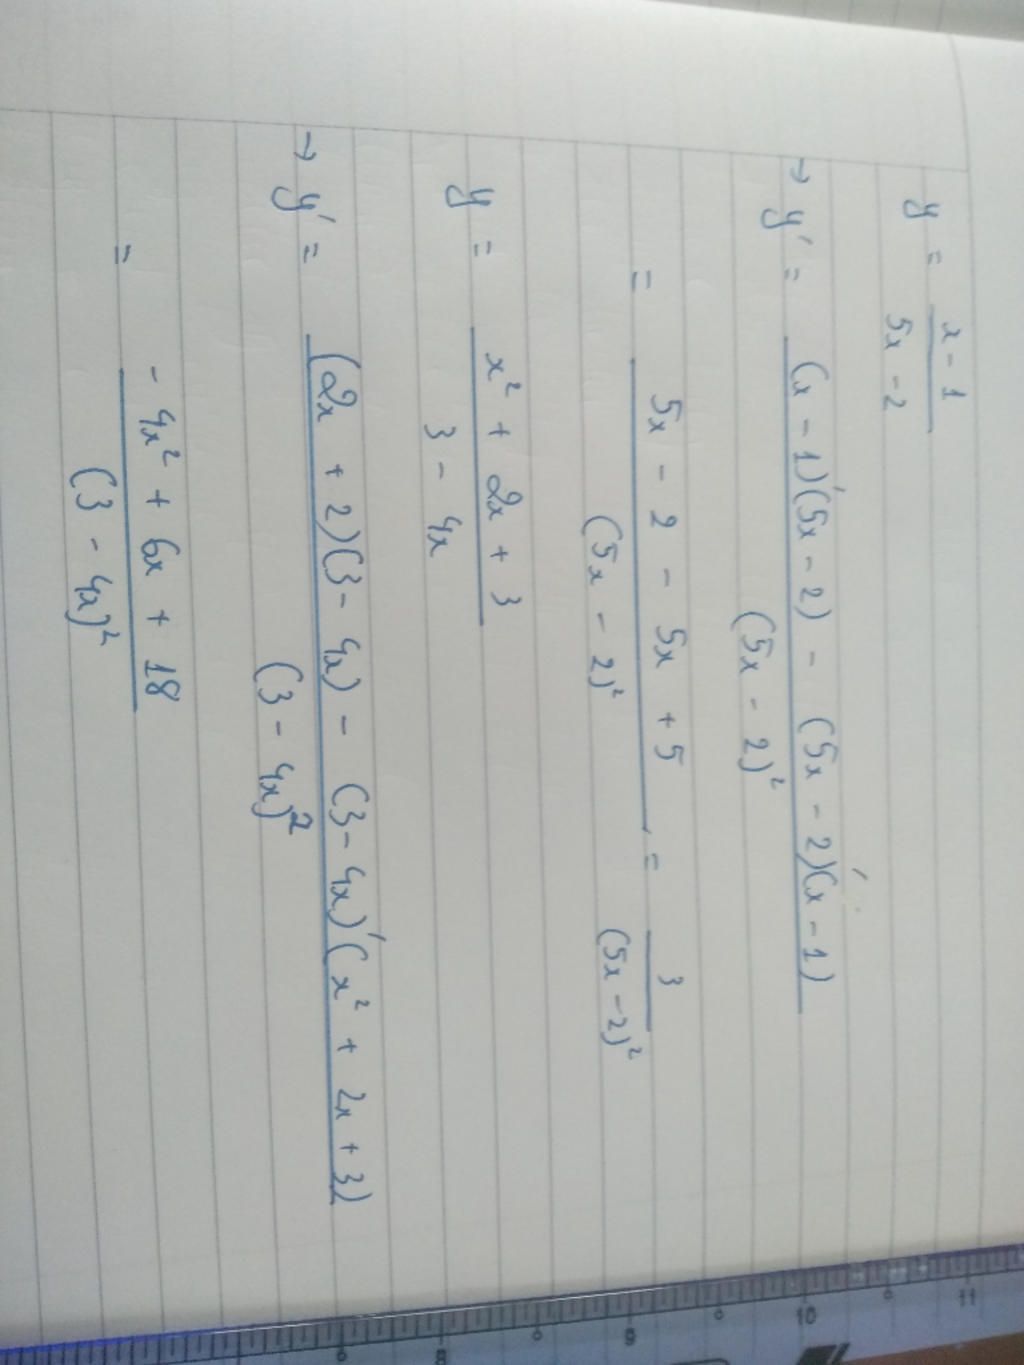 y = x - 1 / 5x - 2
→ y' = (x - 1)'(5x - 2) - (5x - 2)'(x - 1) / (5x - 2)²
= 5x - 2 - 5x + 5 / (5x - 2)² = 3 / (5x - 2)²
y = x² + 2x + 3 / 3 - 4x
→ y' = (2x + 2)(3 - 4x) - (3 - 4x)'(x² + 2x + 3) / (3 - 4x)²
= - 4x² + 6x + 18 / (3 - 4x)²
8 9 10 11